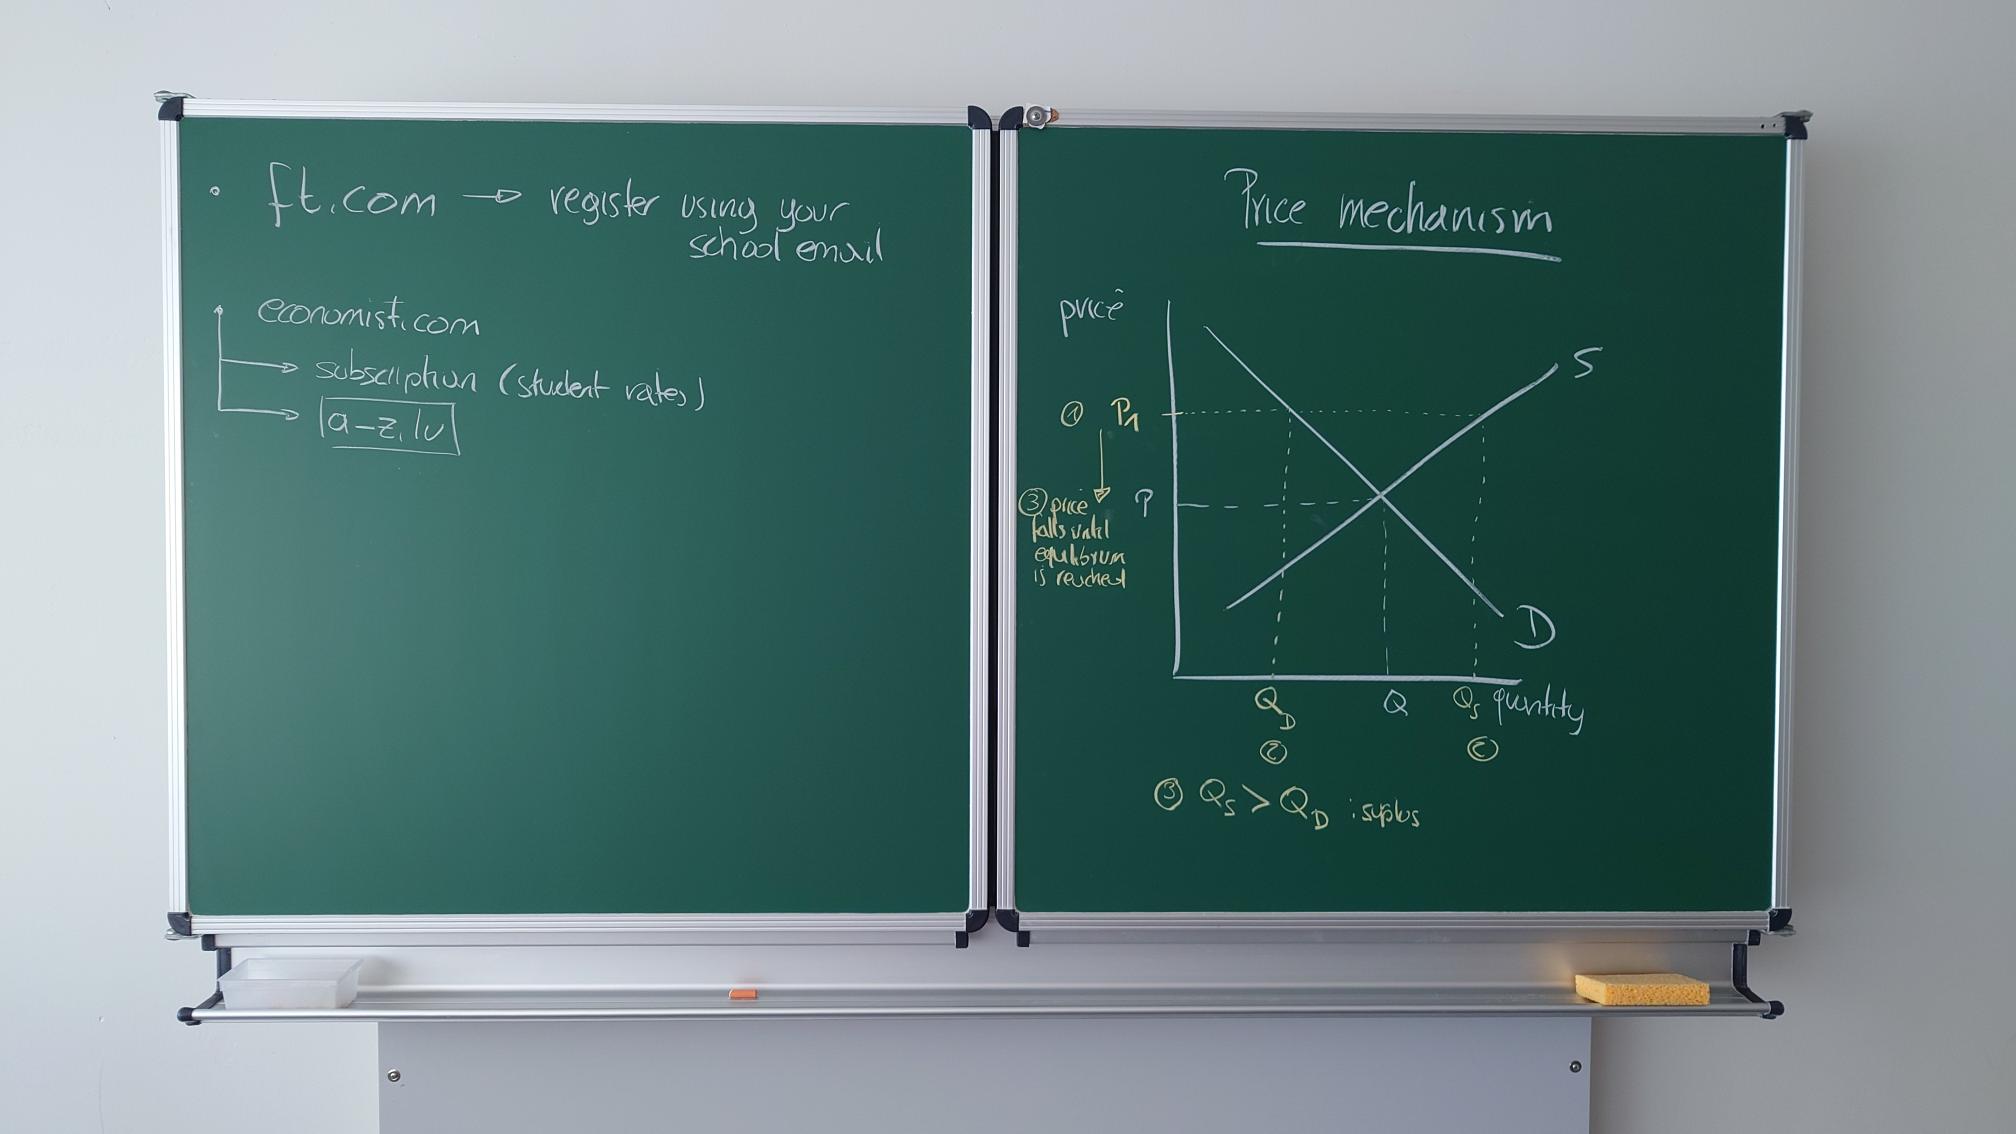 ft.com → register using your
school email
economist.com
→ subscription (student rates)
→ a-z.lu
Price mechanism
price
S
① P1
③ price
falls until
equilibrum
is reached
P
D
QD
Q
QS
quantity
②
②
③ QS > QD : suplus